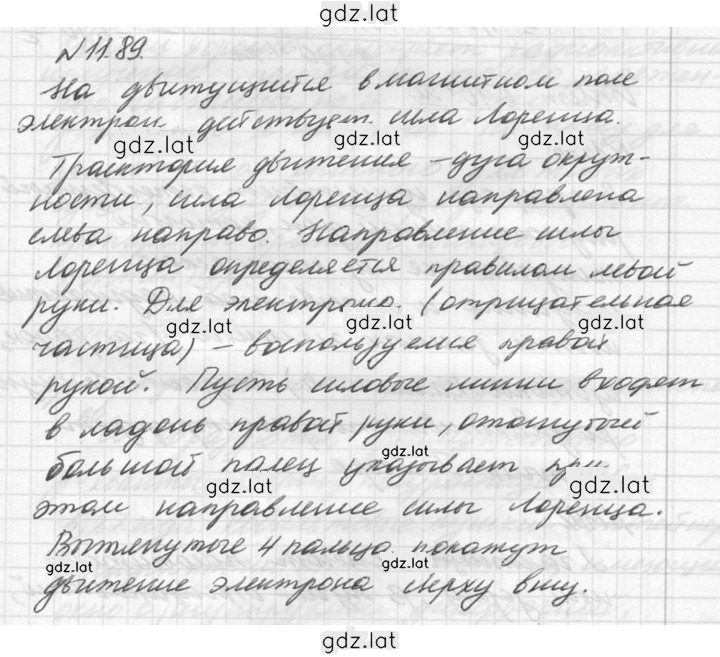 gdz.lat
N 11.89.
На движущийся в магнитном поле
электрон действует сила Лоренца.
gdz.lat gdz.lat gdz.lat
Траектория движения – дуга окруж-
ности, сила Лоренца направлена
слева направо. Направление силы
Лоренца определяется правилом левой
руки. Для электрона (отрицательная
gdz.lat gdz.lat gdz.lat
частица) – воспользуемся правой
рукой. Пусть силовые линии входят
в ладонь правой руки, отогнутый
gdz.lat
большой палец указывает при
gdz.lat gdz.lat
этом направление силы Лоренца.
Вытянутые 4 пальца покажут
gdz.lat gdz.lat gdz.lat
движение электрона сверху вниз.
gdz.lat